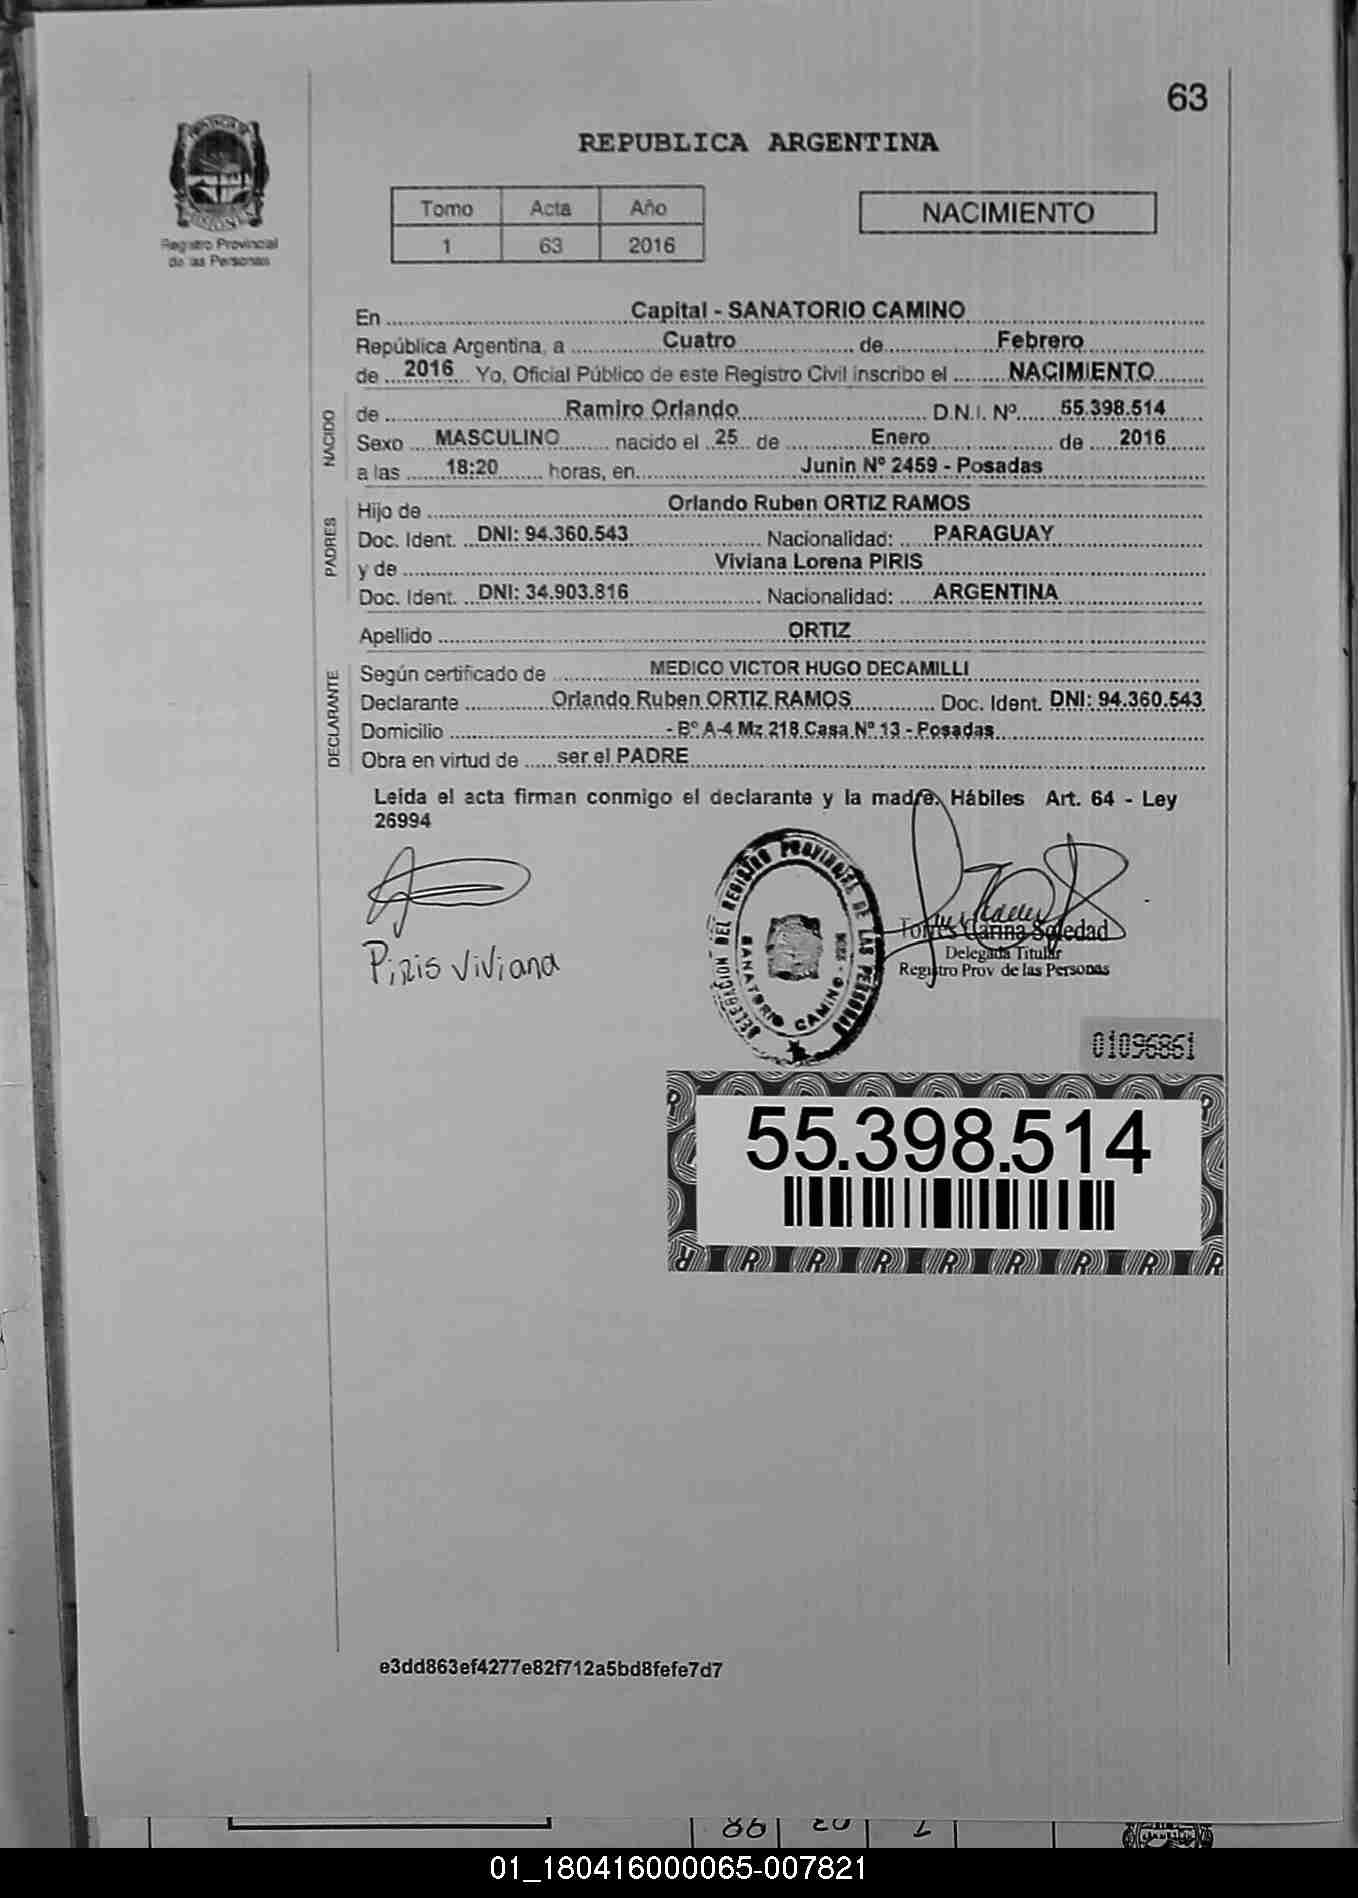 63
REPUBLICA ARGENTINA
Registro Provincial
de las Personas
Tomo Acta Año
1 63 2016
NACIMIENTO
En Capital - SANATORIO CAMINO
República Argentina, a Cuatro de Febrero
de 2016 Yo, Oficial Público de este Registro Civil inscribo el NACIMIENTO
NACIDO
de Ramiro Orlando D.N.I. Nº 55.398.514
Sexo MASCULINO nacido el 25 de Enero de 2016
a las 18:20 horas, en Junin Nº 2459 - Posadas
PADRES
Hijo de Orlando Ruben ORTIZ RAMOS
Doc. Ident. DNI: 94.360.543 Nacionalidad: PARAGUAY
y de Viviana Lorena PIRIS
Doc. Ident. DNI: 34.903.816 Nacionalidad: ARGENTINA
Apellido ORTIZ
DECLARANTE
Según certificado de MEDICO VICTOR HUGO DECAMILLI
Declarante Orlando Ruben ORTIZ RAMOS Doc. Ident. DNI: 94.360.543
Domicilio - Bº A-4 Mz 218 Casa Nº 13 - Posadas
Obra en virtud de ser el PADRE
Leida el acta firman conmigo el declarante y la madre. Hábiles Art. 64 - Ley
26994
Piris Viviana
DELEGACION DEL REGISTRO PROVINCIAL DE LAS PERSONAS
SANATORIO CAMINO
Torres Carina Soledad
Delegada Titular
Registro Prov de las Personas
01096861
55.398.514
R R R R R R R R
e3dd863ef4277e82f712a5bd8fefe7d7
01_180416000065-007821